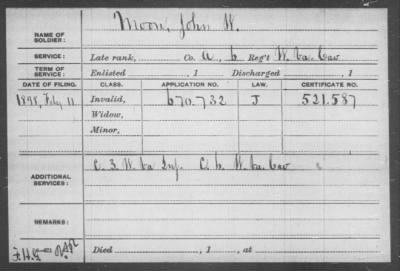 NAME OF SOLDIER: Moon, John W.
SERVICE: Late rank, Co. A, 6 Reg't W. Va. Cav
TERM OF SERVICE: Enlisted , 1 Discharged , 1
DATE OF FILING. CLASS. APPLICATION NO. LAW. CERTIFICATE NO.
1898, July 11 Invalid, 670.732 J 521.587
Widow,
Minor,
ADDITIONAL SERVICES: C. 3. W. Va Inf. C. 6. W. Va. Cav
REMARKS:
Died , 1 , at